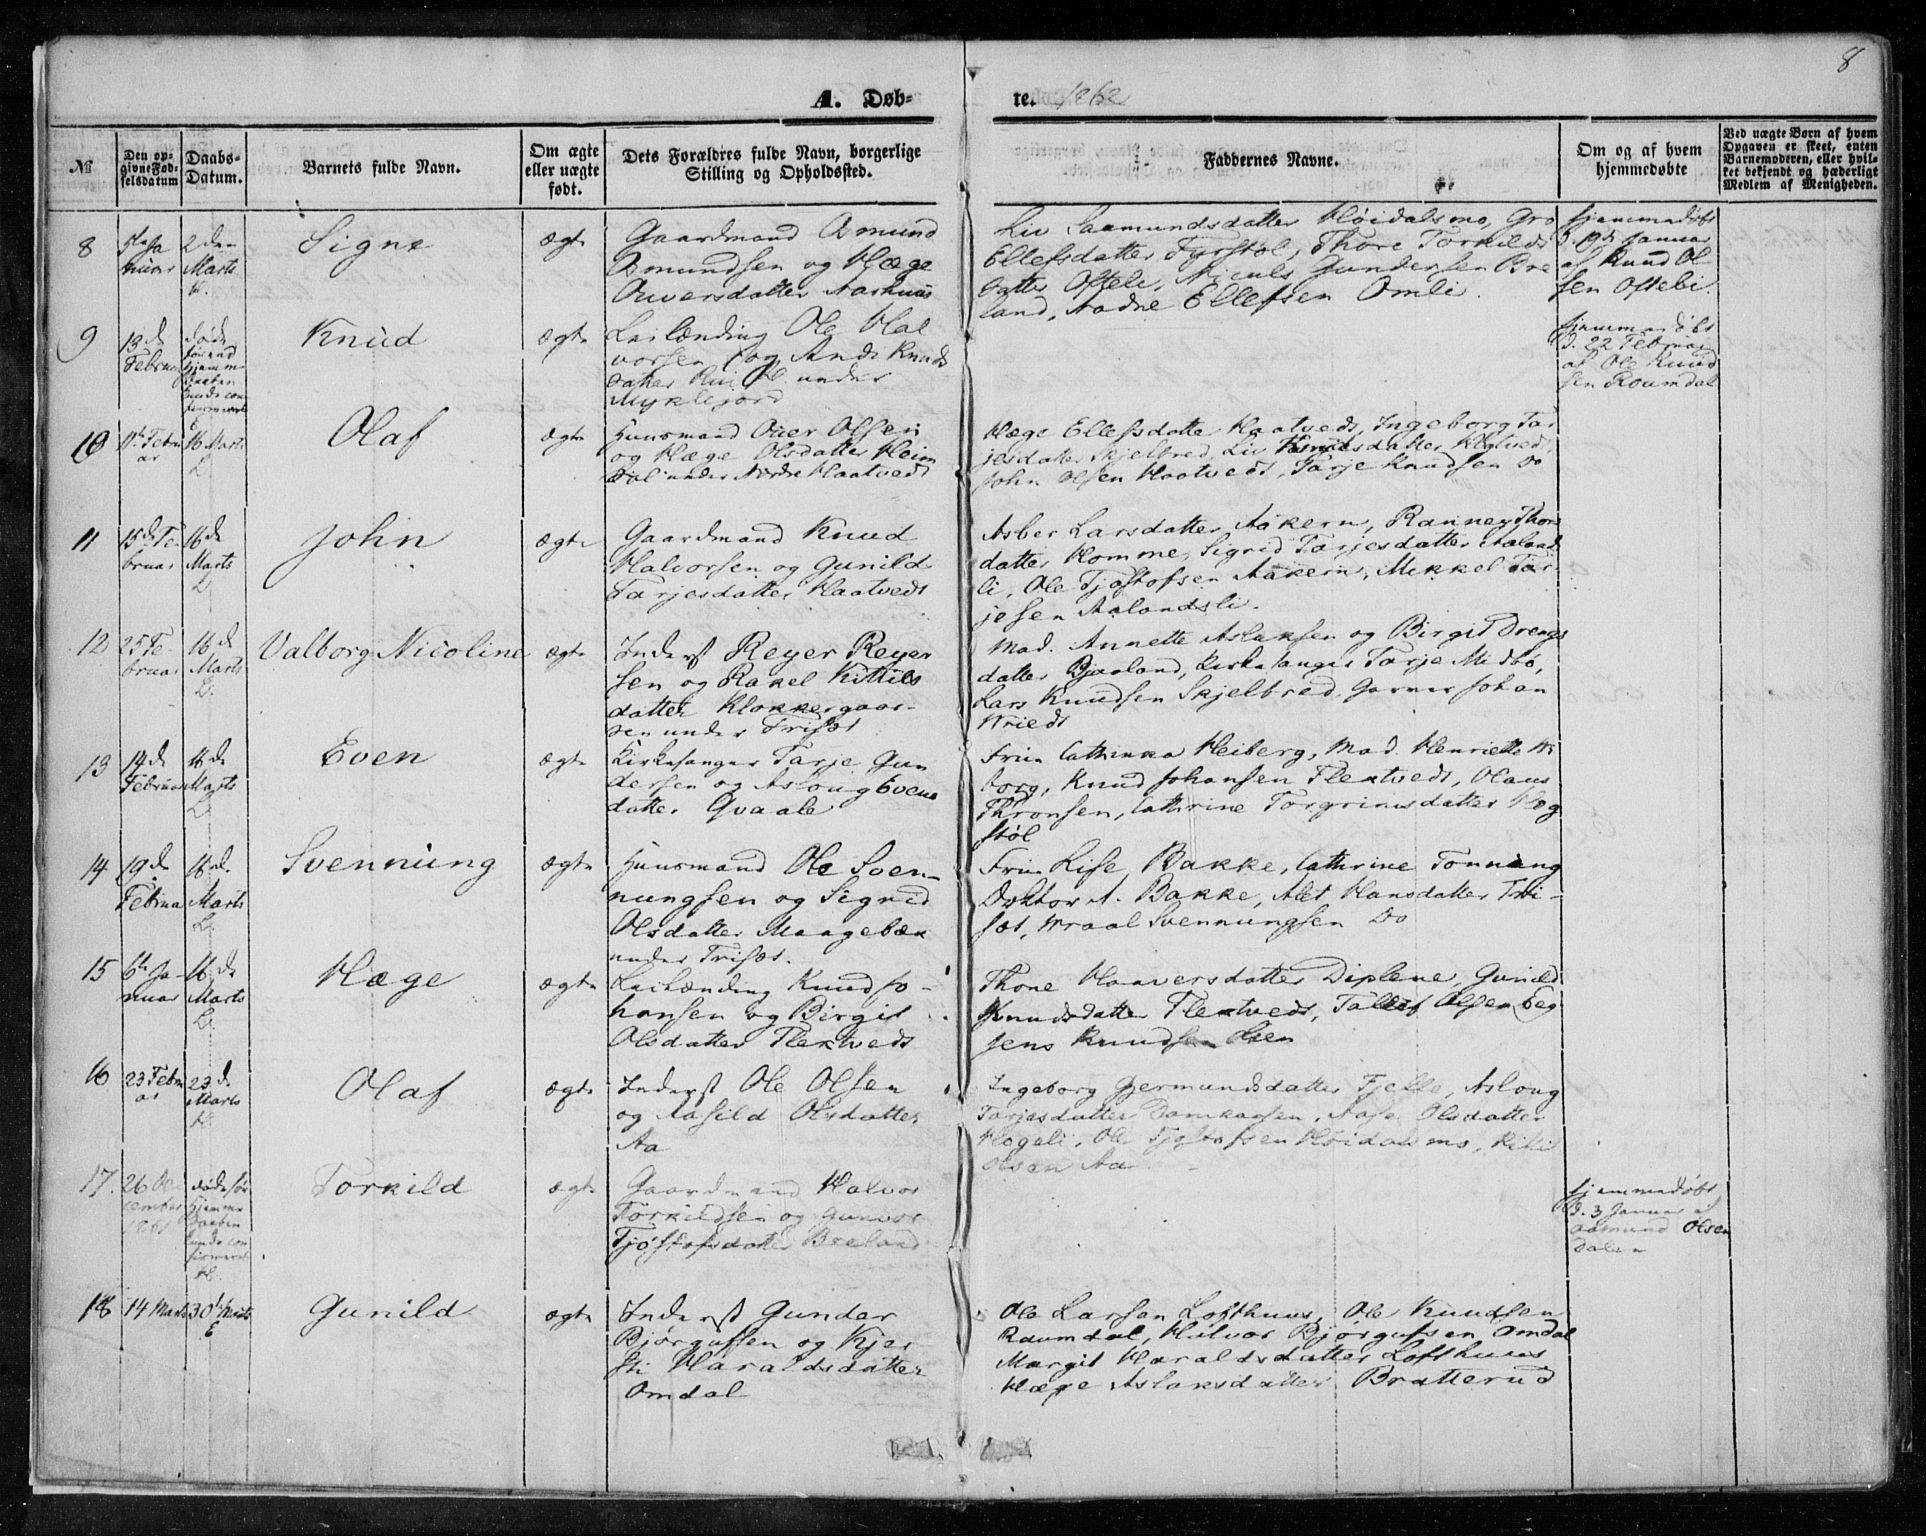 8
A. Døb-
te. 1862
№
Den op-
givne Fød-
selsdatum
Daabs-
Datum.
Barnets fulde Navn.
Om ægte
eller uægte
født.
Dets Forældres fulde Navn, borgerlige
Stilling og Opholdssted.
Faddernes Navne.
Om og af hvem
hjemmedøbte
Ved uægte Børn af hvem
Opgaven er skeet, enten
Barnemoderen, eller hvil-
ket bekjendt og hæderligt
Medlem af Menigheden.
8
Januar
2den
Marts
H.
Signe
ægte
Gaardmand Asmund
Asmundsen og Hæge
Ouversdatter Aarhuus
Liv Saamundsdatter Høidalsmo, Gro
Ellefsdatter Fyrstøl, Thore Torkilds
datter Ofteli, Niculs Gundersen Bre
land, Aadne Ellefsen Omli.
hjemmedøbt
d. 19de Januar
af Knud Ol
sen Oftebi.
9
13de
Februar
døde
førend
hjemme
daaben
kunde con
firmeres
Knud
ægte
Leilænding Ole Hal
vorsen og Anne Knuds
datter under
Myklejord
hjemmedøbt
d. 22 Februar
af Ole Knud
sen Roumdal
10
11te Febru
ar
16 Marts
L.
Olaf
ægte
Huusmand Ouer Olsen
og Hæge Olsdatter Heim
dal under Nordre Haatvedt
Hæge Ellefsdatter Haatvedt, Ingeborg Tar
jesdatter Skjelbred, Liv Tarjesdatter
John Olsen Haatvedt, Tarje Knudsen Do
11
15de Fe-
bruar
16de
Marts
L.
John
ægte
Gaardmand Knud
Halvorsen og Gunild
Tarjesdatter Haatvedt
Asber Larsdatter Aakern, Ranney Thors
datter Homme, Sigrid Tarjesdatter Aalands
li, Ole Tjostofsen Aakern, Mikkel Tar-
jesen Aalandsli.
12
25 Fe-
bruar
16de
Marts
L.
Valborg Nicoline
ægte
Inderst Reyer Reyer
sen og Rakel Kittils
datter Klokkergaar-
den under Trisæt
Mad. Annette Aslaksen og Birgit Drengs
datter Bjaaland, Kirkesanger Tarje Midbø,
Lars Knudsen Skjelbred, Garver Johan
Wriedt
13
14de
Februar
16de
Marts
L.
Even
ægte
Kirkesanger Tarje Gun
dersen og Aslaug Evens
datter Qvaale
Frue Cathinka Heiberg, Mad. Henriette Wi
borg, Knud Johansen Flextvedt, Olaus
Thronsen, Cathrine Torgrimsdatter Høg
støl
14
19de
Februar
16de
Marts
L.
Svennung
ægte
Huusmand Ole Sven-
nungsen og Sigrid
Olsdatter Maagebæk
under Trisæt.
Frue Lise Bakke, Cathrine Tønning
Doktor A. Bakke, Alet Hansdatter Tri-
sæt, Wraal Svennungsen Do
15
6te Ja-
nuar
16de
Marts
L.
Hæge
ægte
Leilænding Knud Jo-
hansen og Birgit
Olsdatter Flextvedt
Thone Haaversdatter Diplene, Gunild
Knudsdatter Flextvedt, Tallef Olsen
Jens Knudsen
16
23 Febru
ar
23de
Marts
H.
Olaf
ægte
Inderst Ole Olsen
og Aasild Olsdatter
Aa
Ingeborg Gjermundsdatter Fjelle, Aslaug
Tarjesdatter Damkaasen, Aase Olsdatter
Høgeli, Ole Tjostofsen Høidalsmo, Kitil
Olsen Aa
17.
26 De-
cember
1861
døde før
hjemme
daaben
kunde con
firmeres
H.
Torkild
ægte
Gaardmand Halvor
Torkildsen og Gunvor
Tjøstofsdatter Breland
hjemmedøbt
d. 3 Januar af
Aamund Olsen
Dalen
18
14 Marts
30te Marts
E
Gunild
ægte
Inderst Gunder
Bjørgufsen og Kjer
sti Haraldsdatter
Omdal
Ole Larsen Lofthuus, Ole Knudsen
Raumdal, Halvor Bjørgufsen Omdal
Margit Haraldsdatter Lofthuus
Hæge Aslaksdatter Bratterud